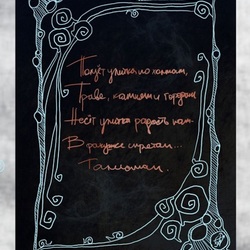 Ползёт улитка по холмам,
Траве, камням и городам
Несёт улитка радость нам
В ракушке спрятан...
Талисман.